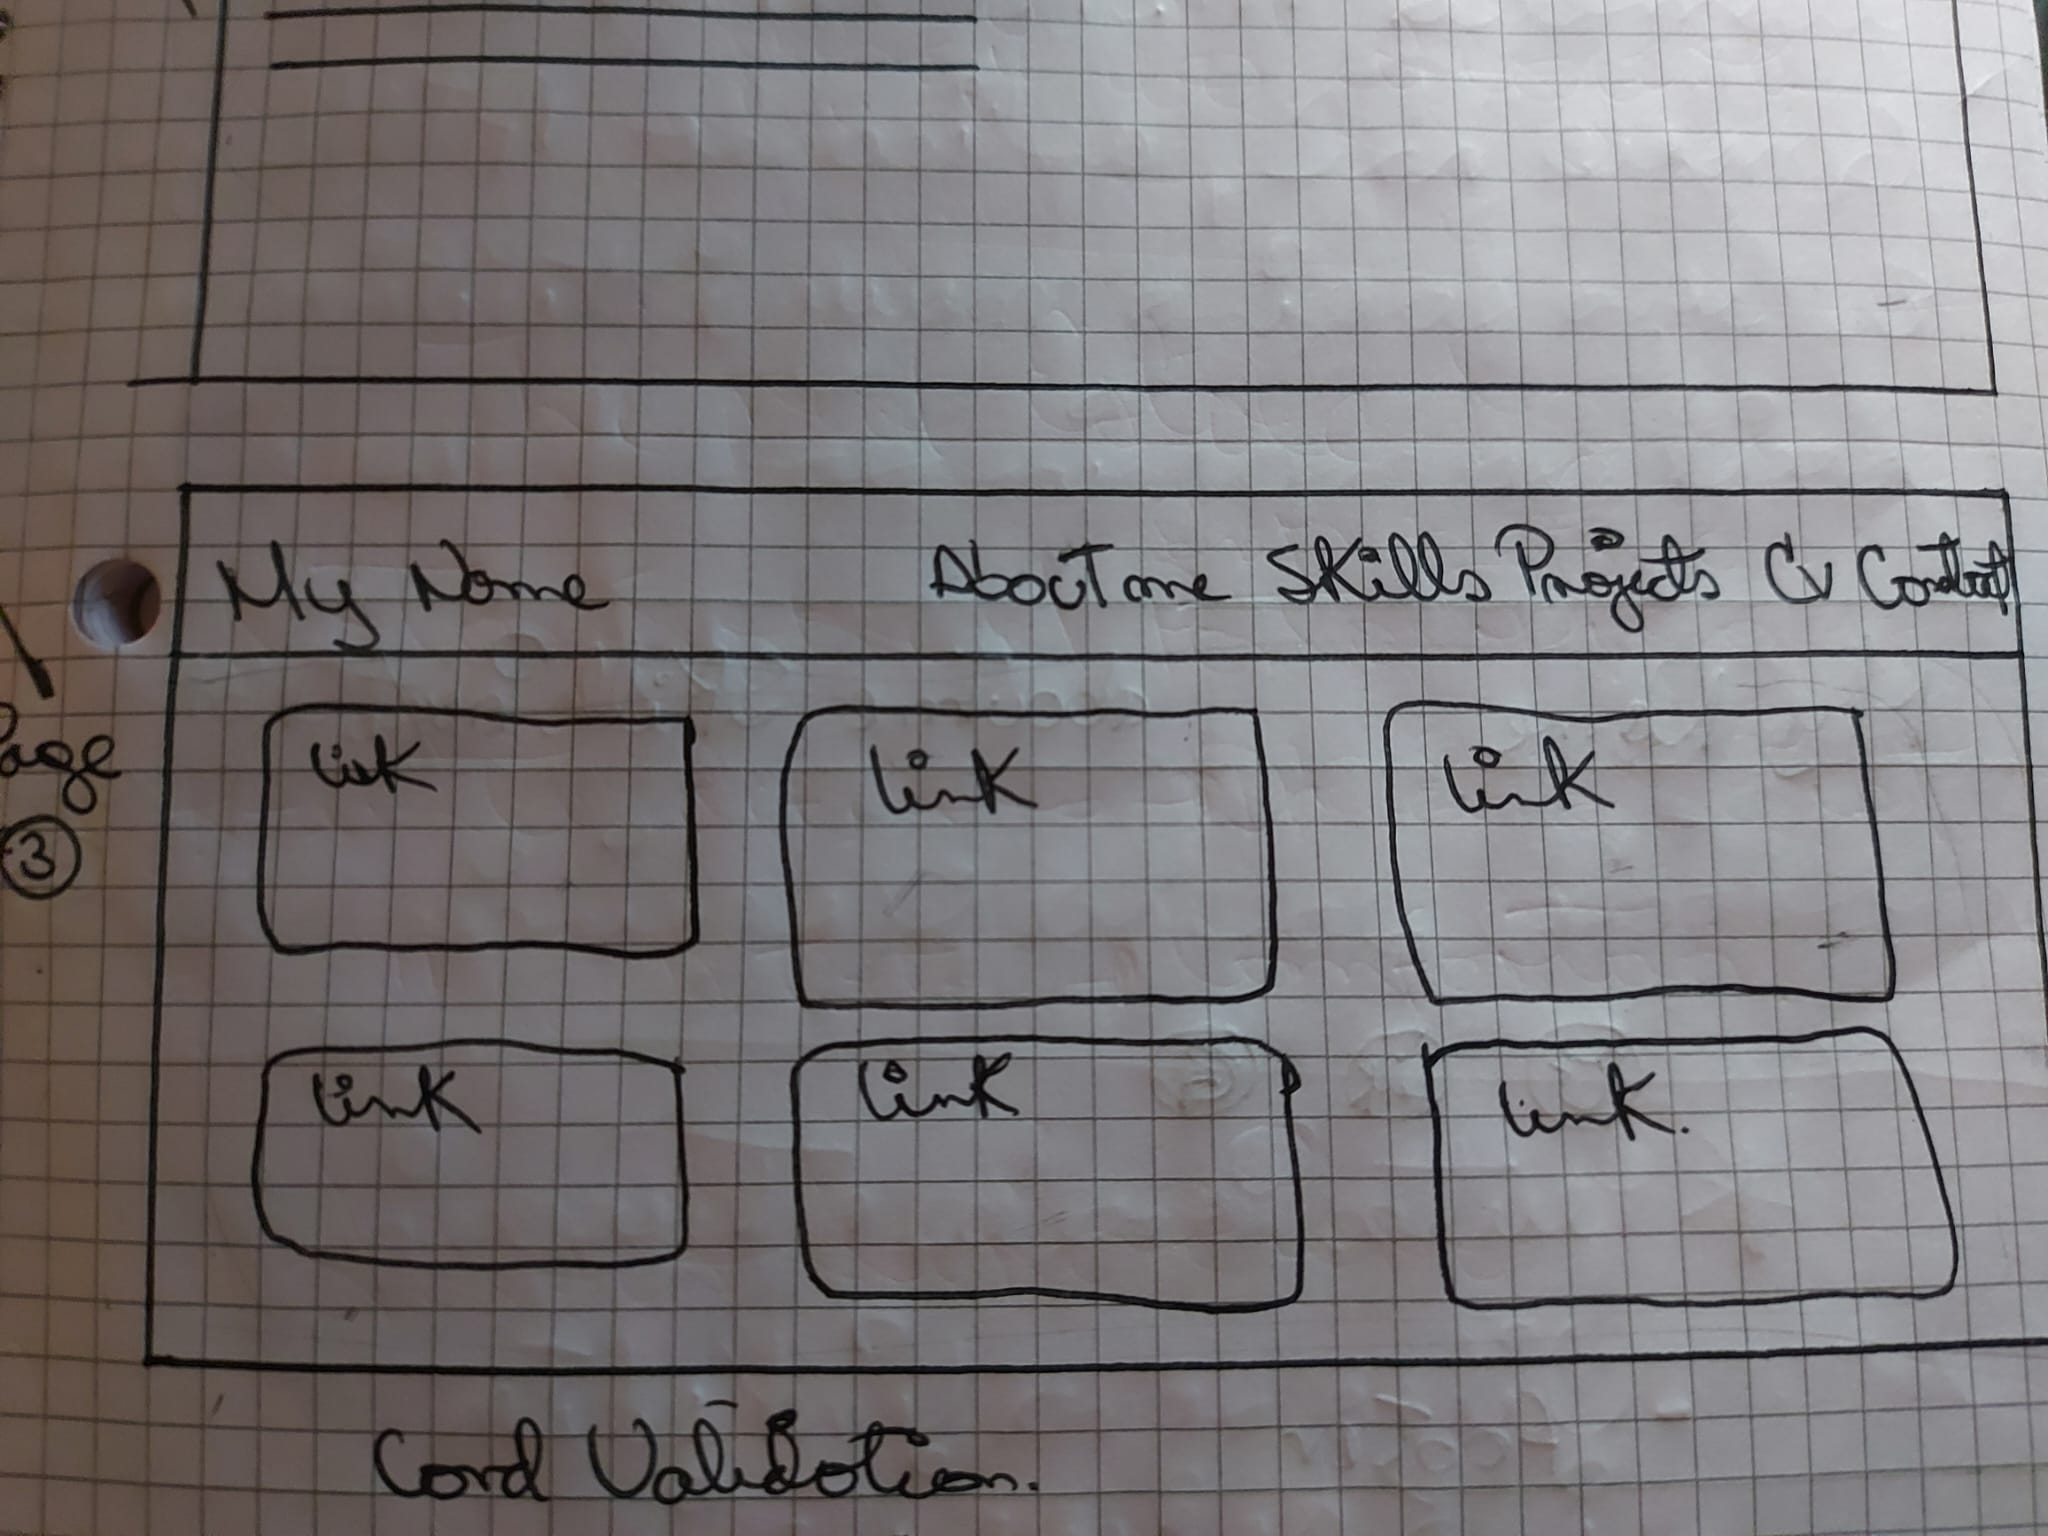 My Name About me Skills Projects Cv Contact
Page
3
link link link
link link link.
Card Validation.